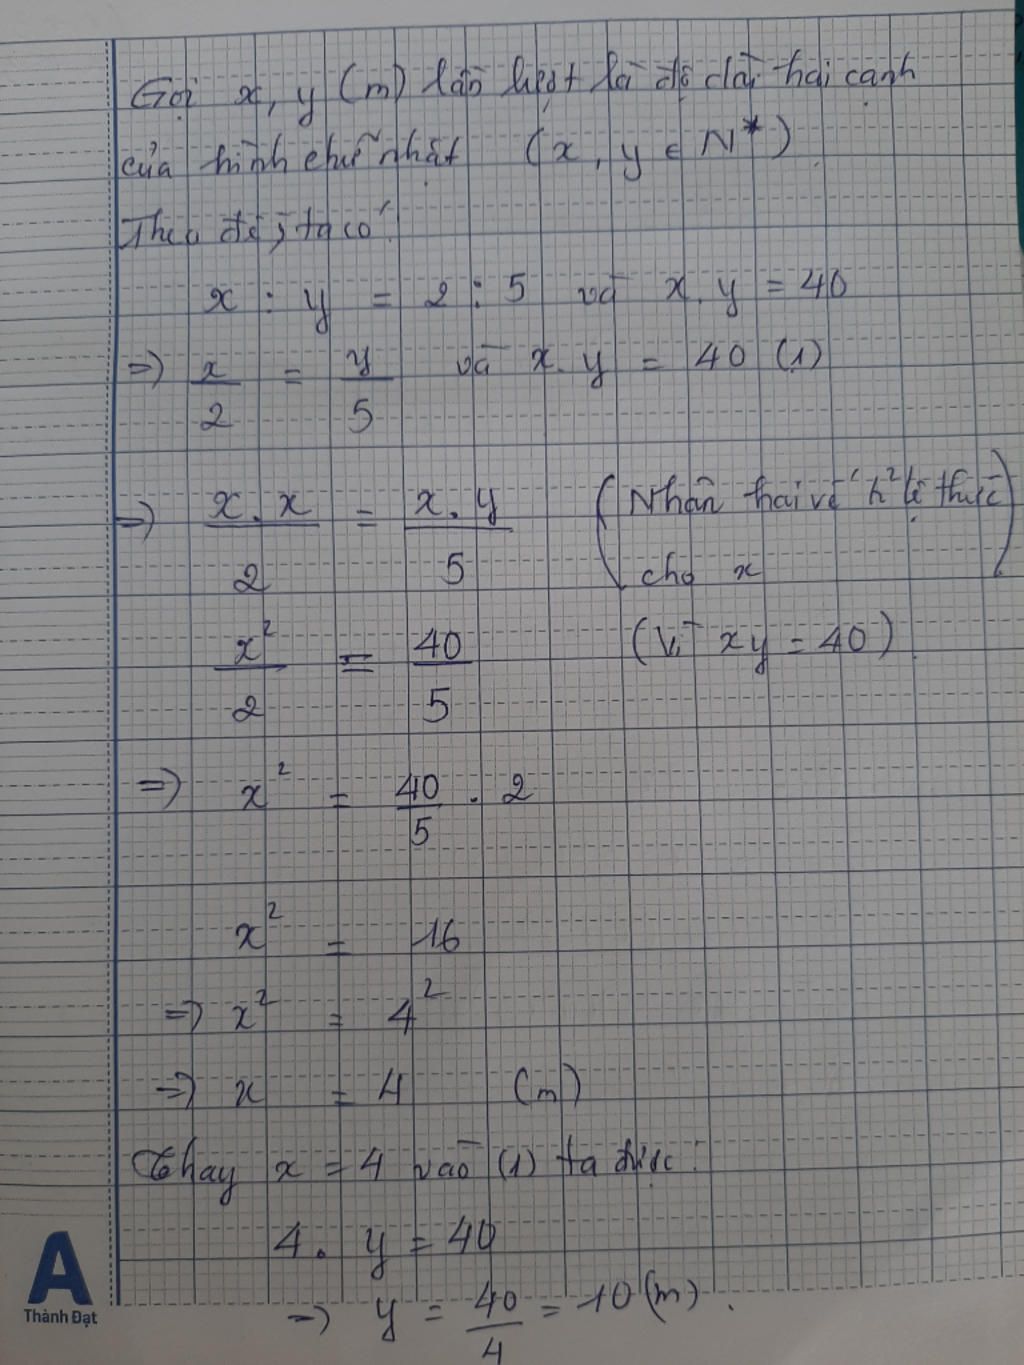 Gọi x, y (m) lần lượt là độ dài hai cạnh
của hình chữ nhật (x, y ∈ N*)
Theo đề, ta có:
x : y = 2 : 5 và x. y = 40
=> x/2 = y/5 và x. y = 40 (1)
=> x. x/2 = x. y/5 (Nhân hai vế tỉ lệ thức
cho x)
x²/2 = 40/5 (Vì xy = 40)
=> x² = 40/5 . 2
x² = 16
=> x² = 4²
=> x = 4 (m)
Thay x = 4 vào (1) ta được:
4. y = 40
=> y = 40/4 = 10 (m).
A
Thành Đạt